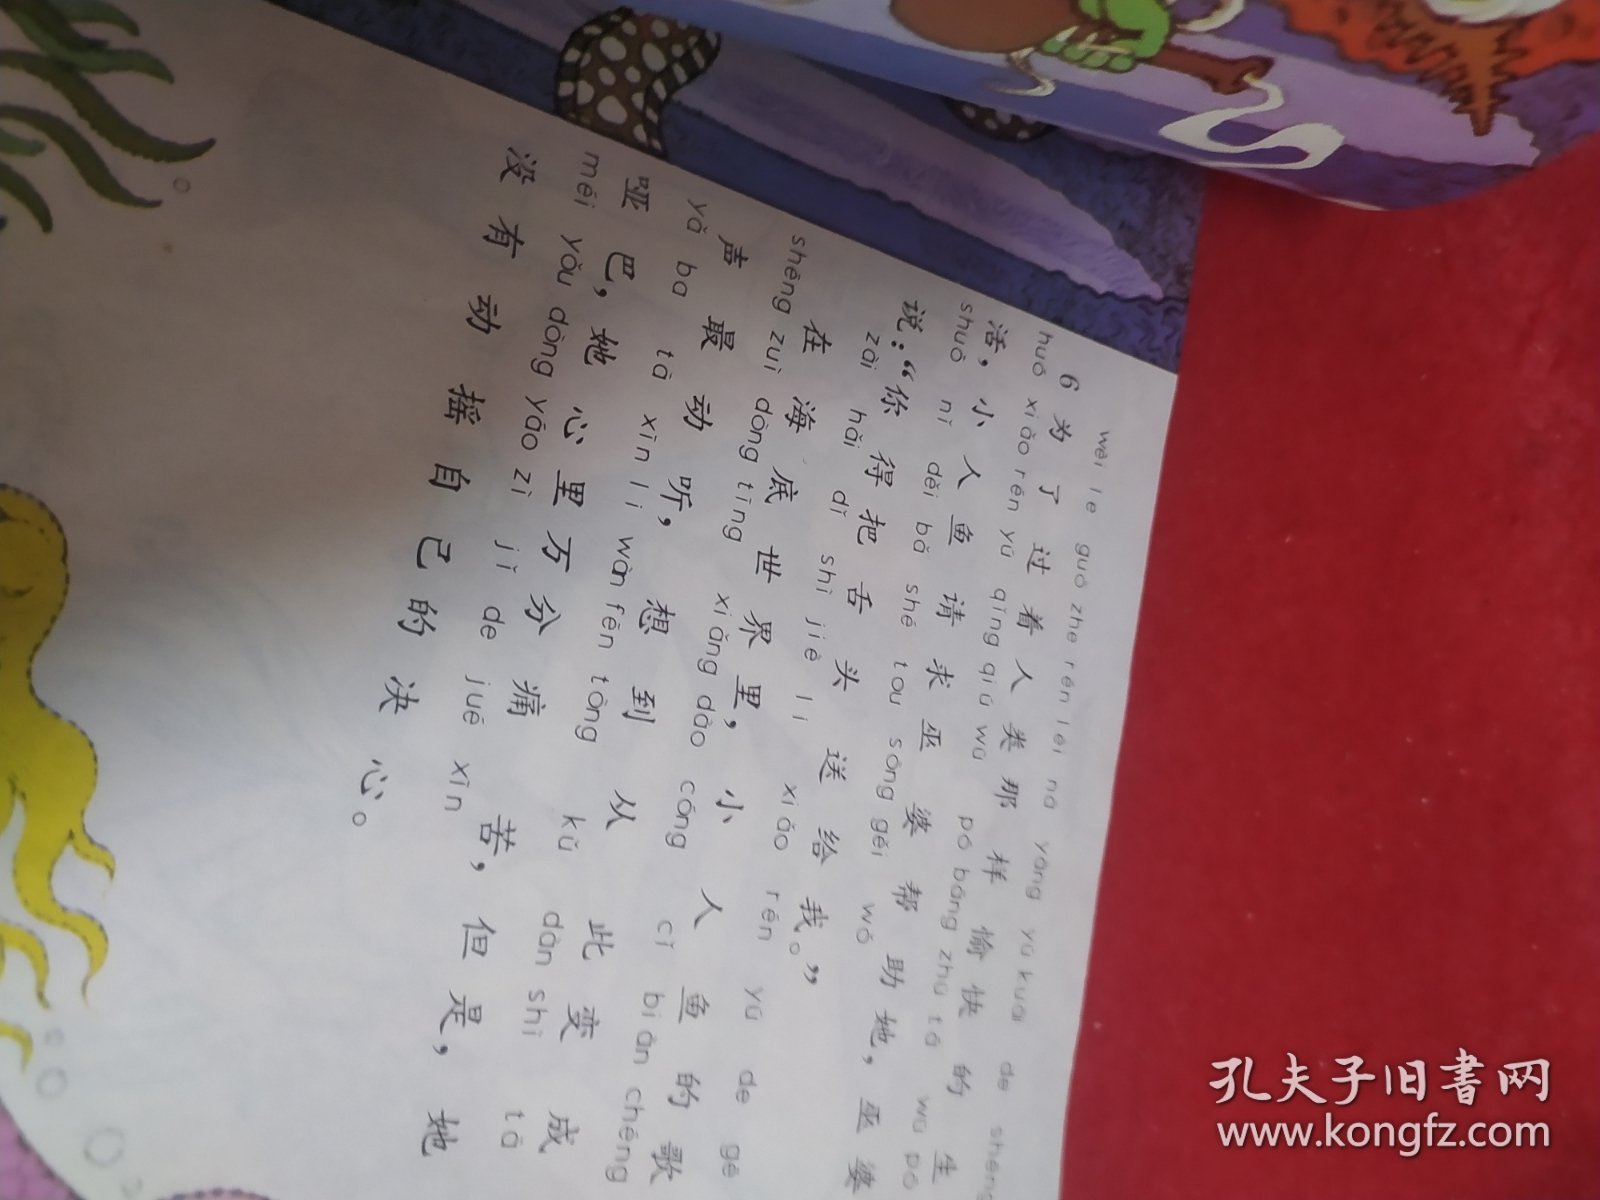 wèi le guò zhe rén lèi nà yàng yú kuài de shēng
6 为了过着人类那样愉快的生
huó xiǎo rén yú qǐng qiú wū pó bāng zhù tā wū pó
活，小人鱼请求巫婆帮助她，巫婆
shuō nǐ děi bǎ shé tou sòng gěi wǒ
说：“你得把舌头送给我。”
zài hǎi dǐ shì jiè lǐ xiǎo rén yú de gē
在海底世界里，小人鱼的歌
shēng zuì dòng tīng xiǎng dào cóng cǐ biàn chéng
声最动听，想到从此变成
yǎ ba tā xīn lǐ wàn fēn tòng kǔ dàn shì tā
哑巴，她心里万分痛苦，但是，她
méi yǒu dòng yáo zì jǐ de jué xīn
没有动摇自己的决心。
孔夫子旧书网
www.kongfz.com